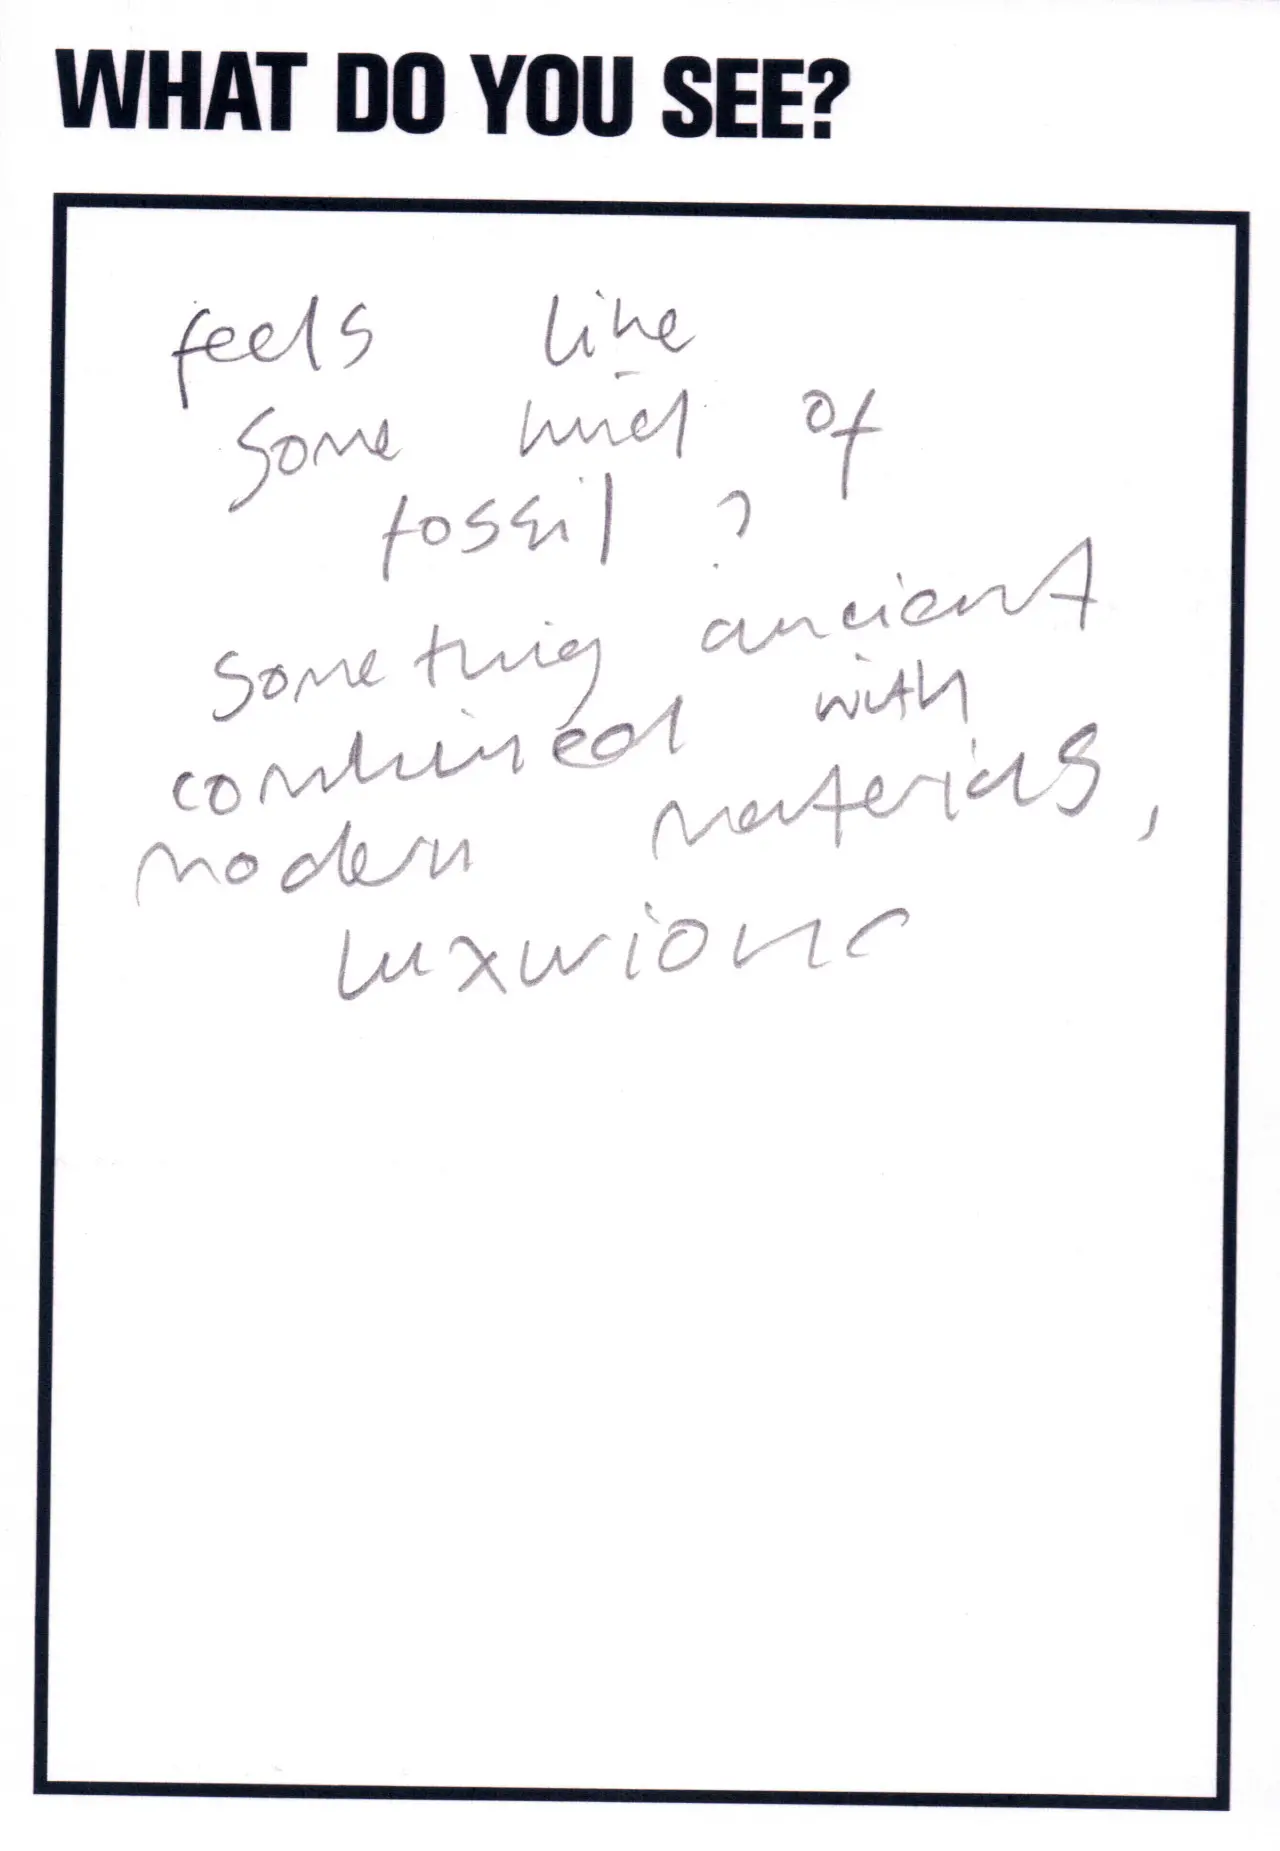 WHAT DO YOU SEE?
feels like
some kind of
fossil?
something ancient
combined with
modern materials,
luxurious